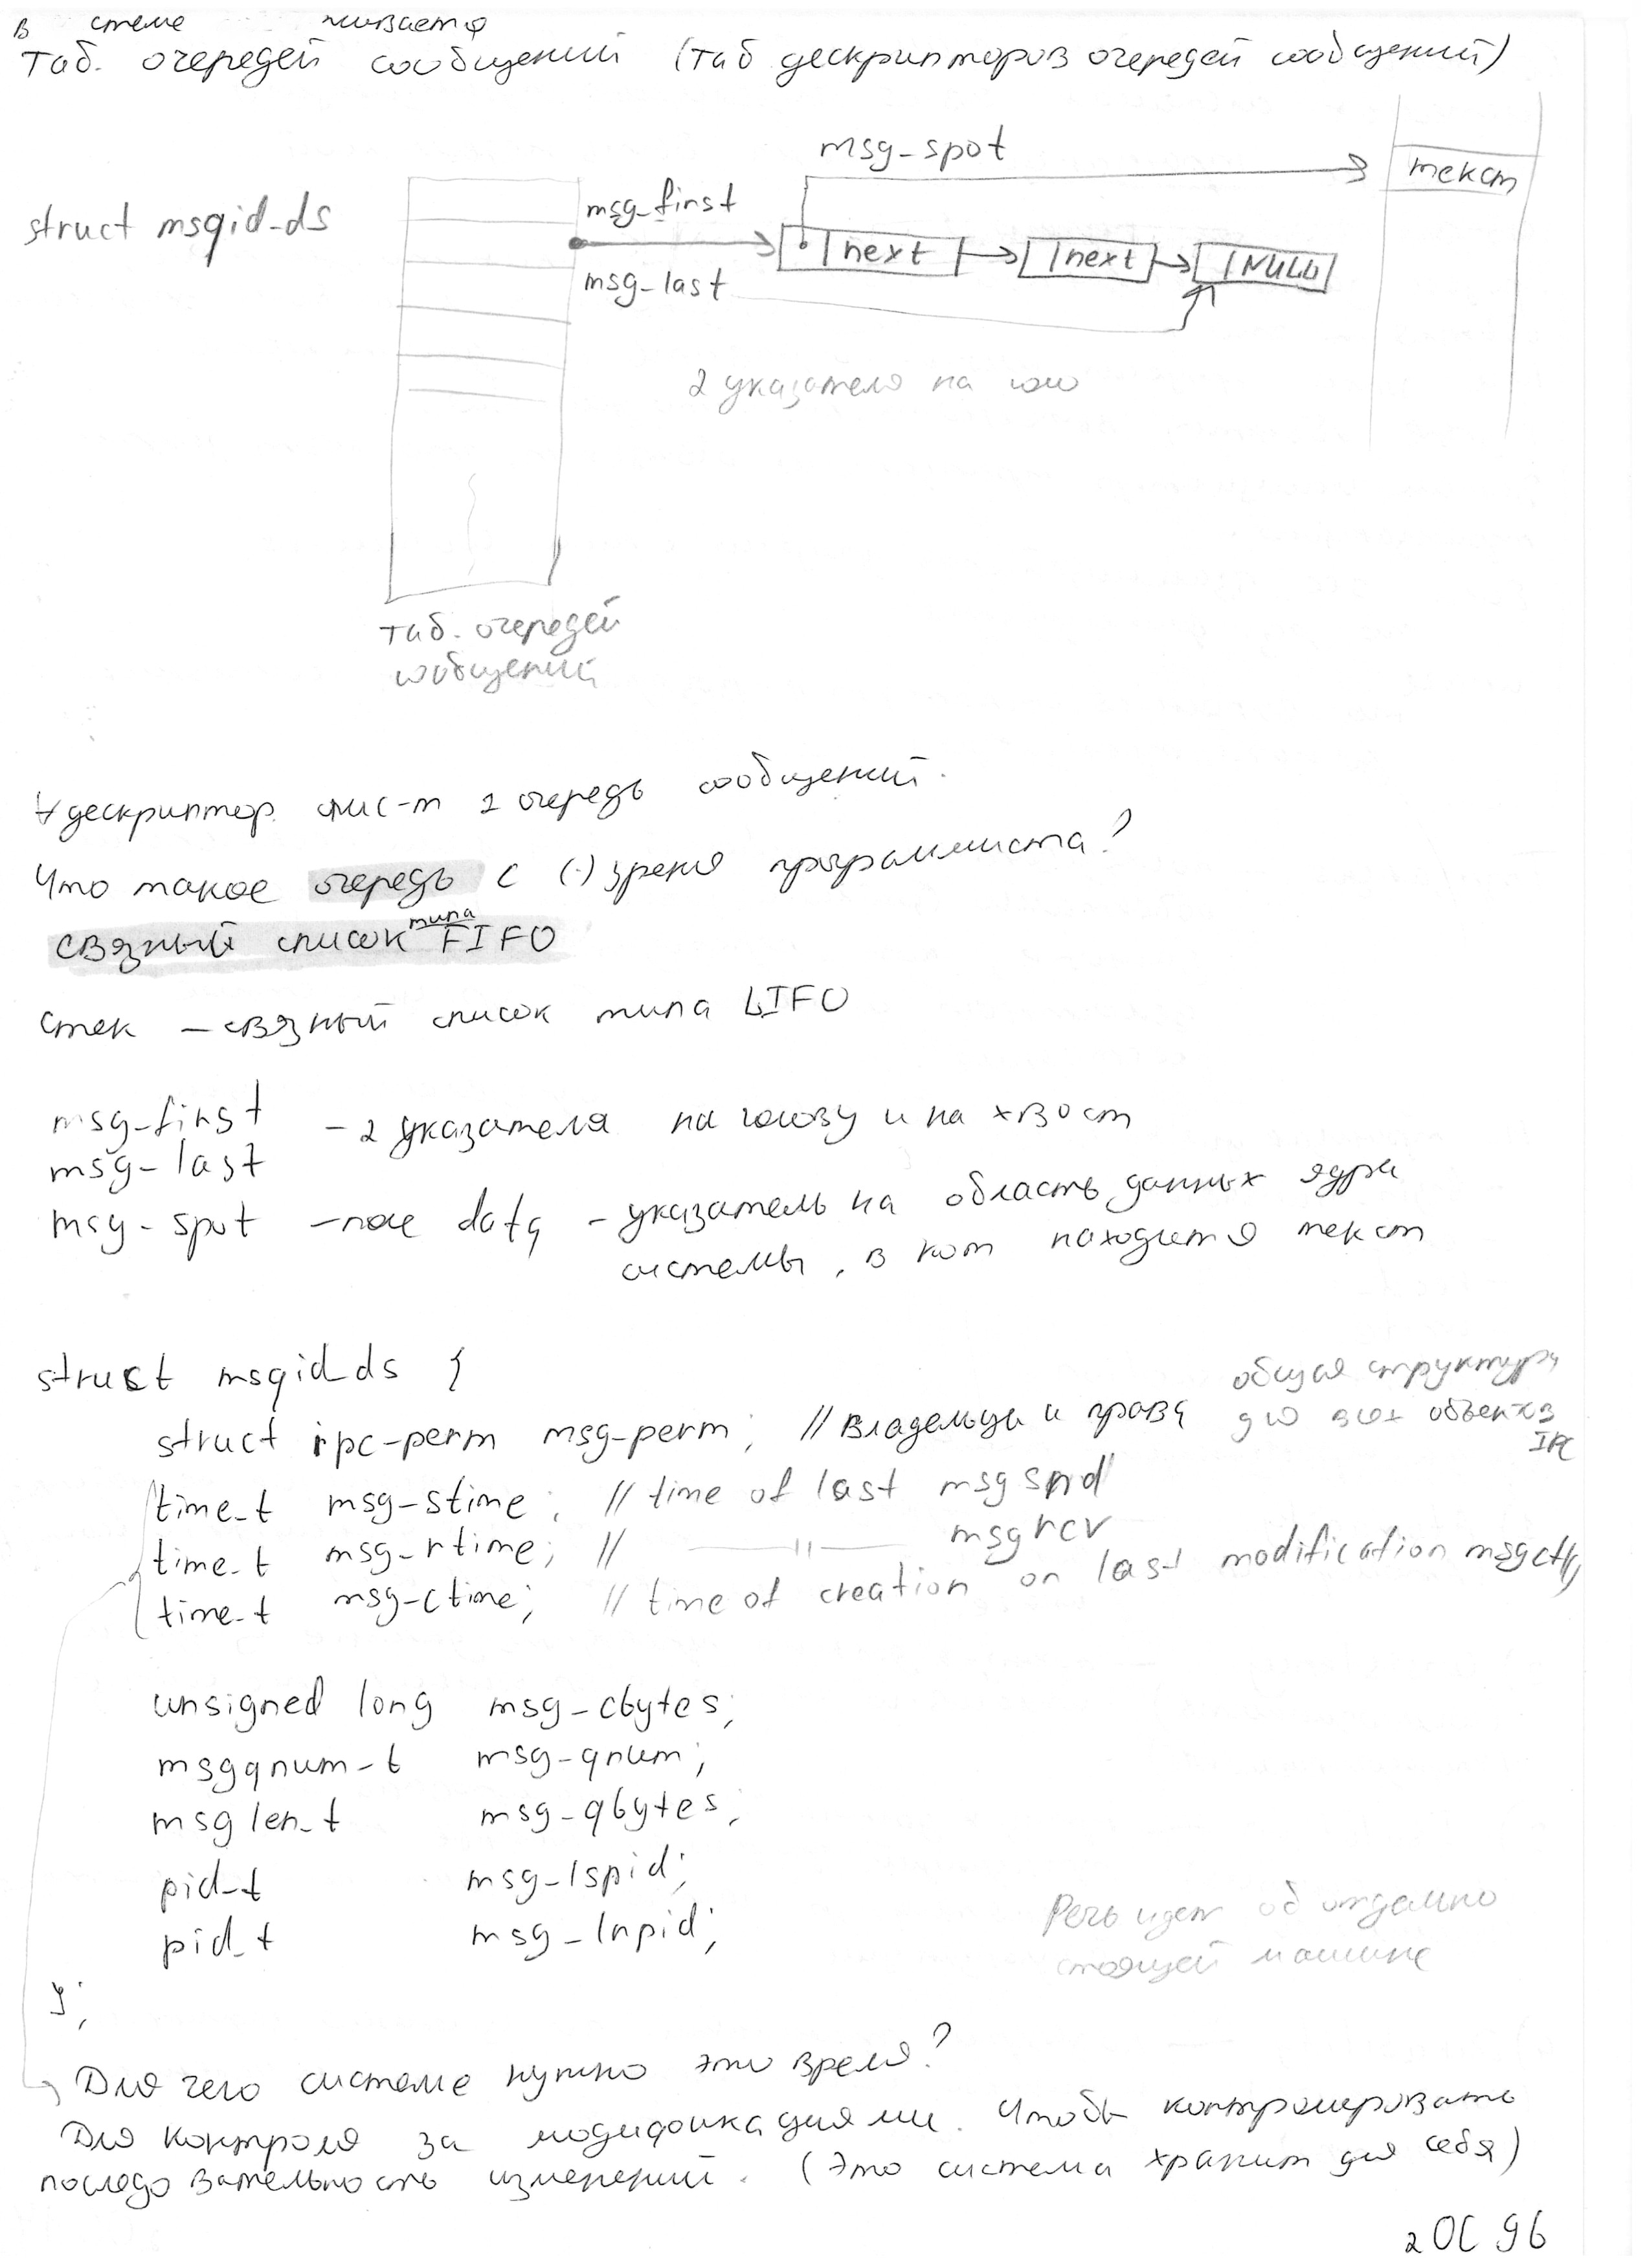 в стеме живается
Таб. очередей сообщений (таб дескрипторов очередей сообщений)
msg_spot
текст
struct msqid_ds
msg_first
next
next
NULL
msg_last
2 указателя на
таб. очередей
сообщений
∀ дескриптор опис-т 1 очередь сообщений.
Что такое очередь с (·) зрения программиста?
связный список типа FIFO
стек – связный список типа LIFO
msg_first – 2 указателя на голову и на хвост
msg_last
msg_spot – поле data – указатель на область данных ядра
системы, в кот находится текст
struct msqid_ds {
struct ipc_perm msg_perm; // владельцы и права общая структура
для всех объектов
IPC
time_t msg_stime; // time of last msgsnd
time_t msg_rtime; // —— ıı —— msgrcv
time_t msg_ctime; // time of creation or last modification msgctl
unsigned long msg_cbytes;
msgqnum_t msg_qnum;
msglen_t msg_qbytes;
pid_t msg_lspid;
pid_t msg_lrpid;
Речь идет об отдельно
стоящей машине
};
Для чего системе нужно это время?
Для контроля за модификациями. Чтобы контролировать
последовательность изменений. (Это система хранит для себя)
2 ОС 96